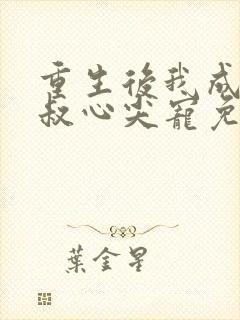 重生後我成
叔心尖寵免
葉金星